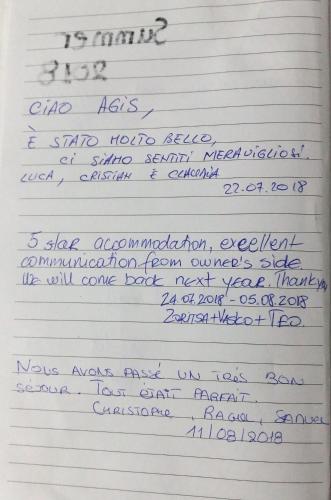 Summer
2018
CIAO AGIS,
È STATO MOLTO BELLO,
CI SIAMO SENTITI MERAVIGLIOSI.
LUCA, CRISTIAN E CLAUDIA
22.07.2018
5 star accommodation, excellent
communication from owner's side.
We will come back next year. Thank you
24.07.2018 - 05.08.2018
ZORITSA + VASKO + TEO.
NOUS AVONS PASSÉ UN TRÈS BON
SÉJOUR. TOUT ÉTAIT PARFAIT.
CHRISTOPHE, RACHEL, SAMUEL
11/08/2018